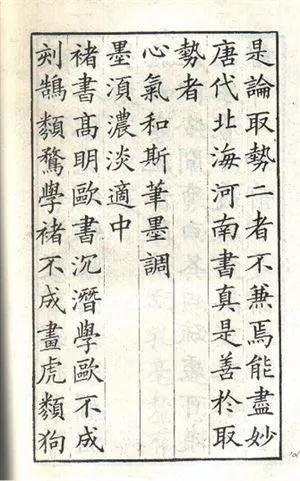 是論取勢二者不兼焉能盡妙
唐代北海河南書真是善於取
勢者
心氣和斯筆墨調
墨湏濃淡適中
褚書髙明歐書沉潛學歐不成
刻鵠類騖學褚不成畫虎類狗